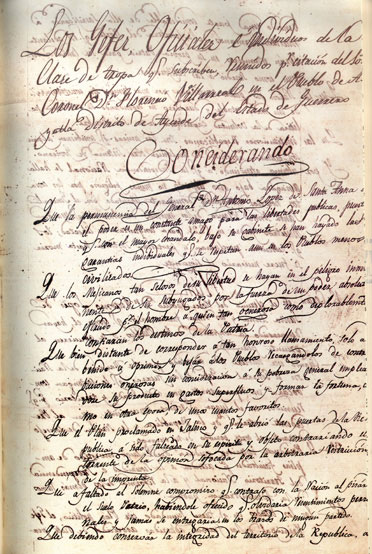 Los Gefes Oficiales e individuos de la
Clase de tropa q.e Subscriben, reunidos p.r citacion del S.r
Coronel D.n Florencio Villarreal en el Pueblo de A-
yutla Distrito de Ayutla del Estado de Guerrero
Considerando
Que la permanencia del General D.n Antonio Lopez de Santa Anna e
el poder es un constante amago para las libertades publicas, puest
q.e con el mayor escandalo, bajo su gobierno se han hoyado las
garantias individuales q.e se respetan aun en los Pueblos menos
civilizados
Que los Mejicanos tan celosos de su libertad se hayan en el peligro inmi
nente de ser subyugados por la fuerza de un poder absoluto
ejercido p.r el hombre a quien tan generosa como deplorablemente
confiaran los destinos de la Patria
Que bien distante de corresponder a tan honroso llamamiento, solo a
venido a oprimir y bejar a los Pueblos recargandolos de contri
buciones onerosas sin consideracion a la pobreza general emplean
dose su producto en gastos superfluos y formar la fortuna, co
mo en otra epoca de unos cuantos favoritos
Que el Plan proclamado en Jalisco q.e le abrio las puertas de la Re
publica a sido falseado en su espiritu y objeto contrariando el
torrente de la opinion sofocada por la arbitraria restriccion
de la imprenta
Que a faltado el solemne compromiso q.e contrajo con la Nacion al pisar
el suelo Patrio, habiendole ofrecido q.e olvidaria resentimientos perso
nales y Jamas se entregaria en los brazos de ningun partido
Que debiendo conservar la integridad del territorio de la Republica, a